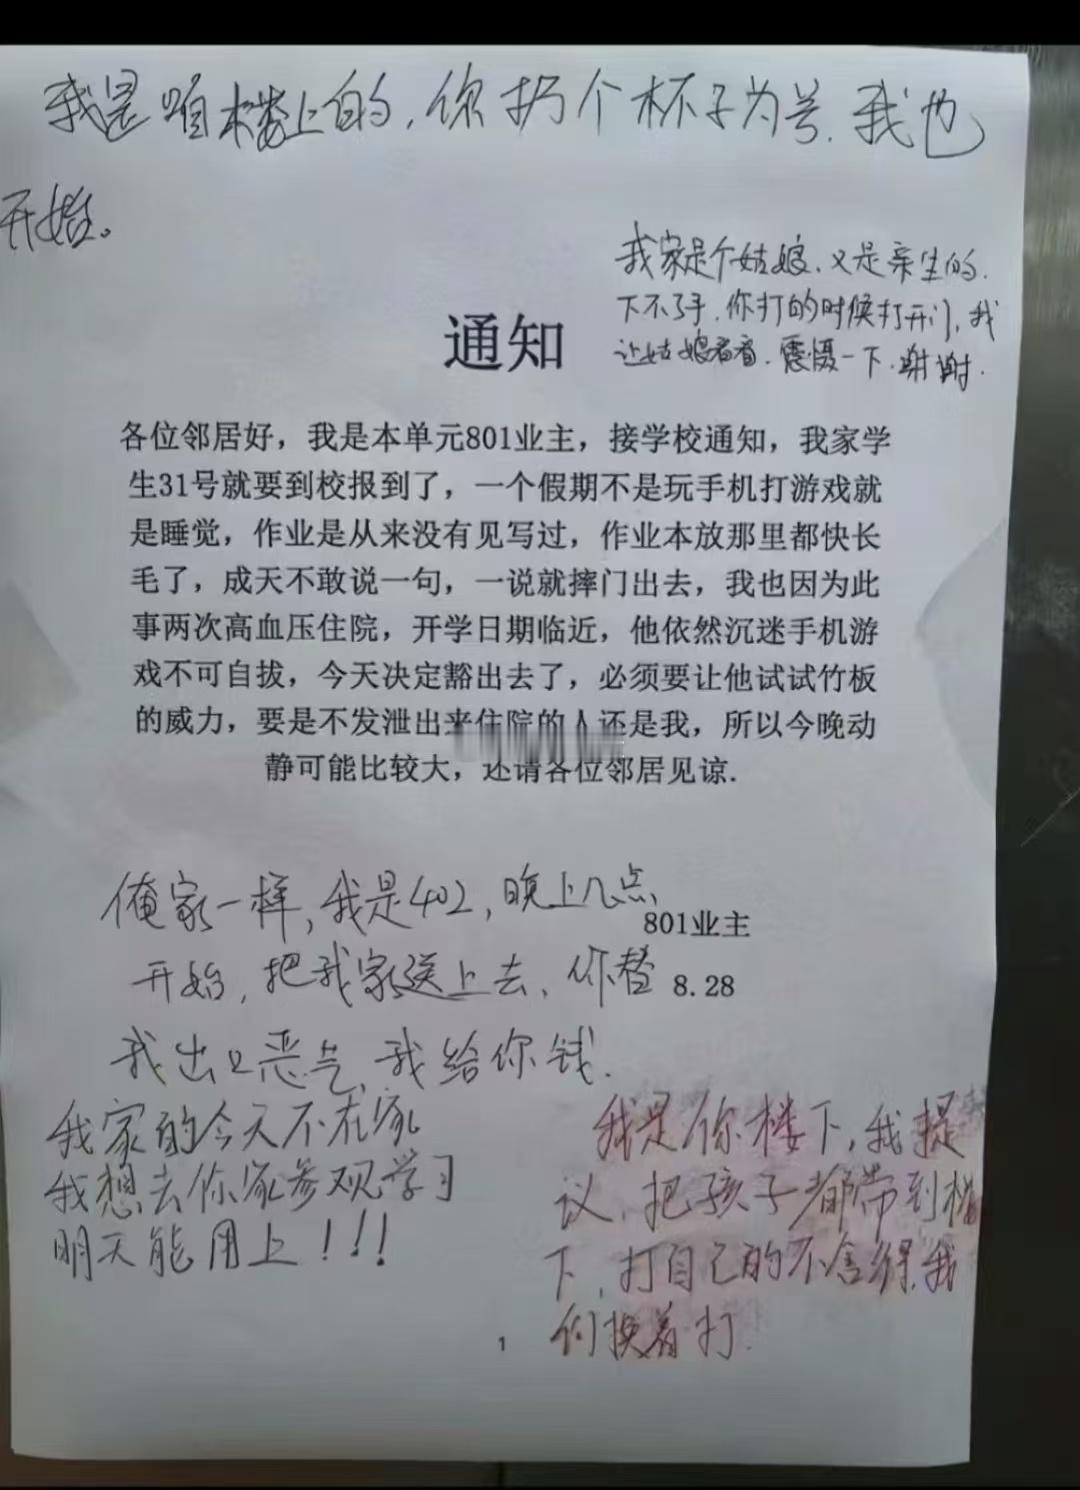 我是咱楼上的,你扔个杯子为号.我也
开始。
我家是个姑娘.又是亲生的.
下不了手.你打的时候打开门,我
让姑娘看看.震慑一下.谢谢.
通知
各位邻居好，我是本单元801业主，接学校通知，我家学
生31号就要到校报到了，一个假期不是玩手机打游戏就
是睡觉，作业是从来没有见写过，作业本放那里都快长
毛了，成天不敢说一句，一说就摔门出去，我也因为此
事两次高血压住院，开学日期临近，他依然沉迷手机游
戏不可自拔，今天决定豁出去了，必须要让他试试竹板
的威力，要是不发泄出来住院的人还是我，所以今晚动
静可能比较大，还请各位邻居见谅.
801业主
8.28
俺家一样,我是402,晚上几点
开始,把我家送上去、你替
我出口恶气,我给你钱.
我家的今天不在家
我想去你家参观学习
明天能用上!!!
我是你楼下,我提
议,把孩子都带到楼
下,打自己的不舍得,我
们换着打.
1